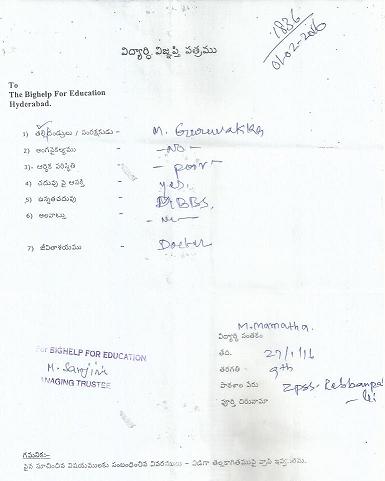 1836
01-02-2016
విద్యార్థి విజ్ఞప్తి పత్రము
To
The Bighelp For Education
Hyderabad.
1) తల్లిదండ్రులు / సంరక్షకుడు - M. Guruvakka
2) అంగవైకల్యము - -NO-
3) ఆర్థిక పరిస్థితి - - poor -
4) చదువు పై ఆసక్తి - yes.
5) ఉన్నతచదువు - MBBS,
6) అలవాట్లు - - No -
7) జీవితాశయము - Doctor
M. Mamatha.
విద్యార్థి సంతకం
తేది. 27/1/16
తరగతి - 9th
పాఠశాల పేరు Zpss- Rebbanpal
పూర్తి చిరునామా -li
For BIGHELP FOR EDUCATION
M. Sanjiv
MANAGING TRUSTEE
గమనిక:-
పైన సూచించిన విషయములకు సంబంధించిన వివరములు - విడిగా తెల్లకాగితముపై వ్రాసి ఇవ్వగలము.